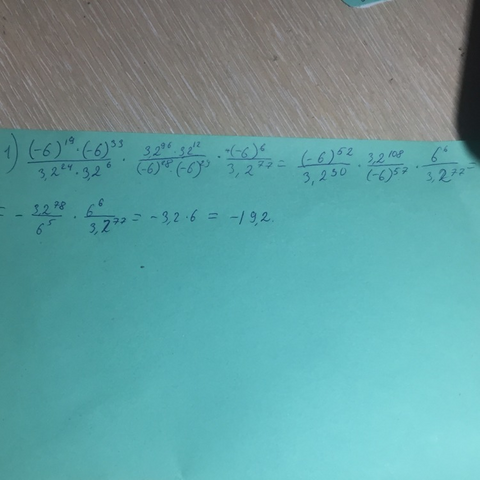 1) \frac{(-6)^{19} \cdot (-6)^{33}}{3,2^{24} \cdot 3,2^{6}} \cdot \frac{3,2^{96} \cdot 3,2^{12}}{(-6)^{18} \cdot (-6)} \cdot \frac{-(-6)^{6}}{3,2^{77}} = \frac{(-6)^{52}}{3,2^{30}} \cdot \frac{3,2^{108}}{(-6)^{57}} \cdot \frac{6^{6}}{3,2^{77}} =
= - \frac{3,2^{78}}{6^{5}} \cdot \frac{6^{6}}{3,2^{77}} = -3,2 \cdot 6 = -19,2.